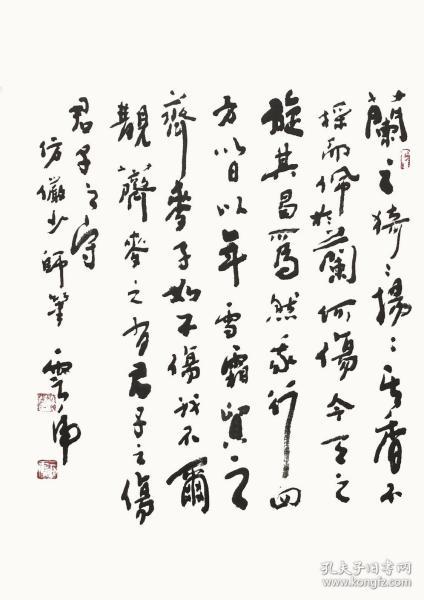 蘭之猗〻揚〻其香不
採而佩於蘭何傷今天之
旋其曷爲然我行四
方以日以年雪霜貿〻
薺麥子如不傷我不爾
覯薺麥之有君子之傷
君子之守
仿儼少師筆
孔夫子旧书网
www.kongfz.com